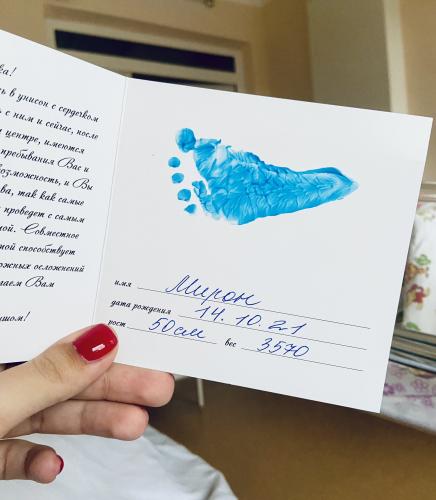 ка!
ь в унисон с сердечком
ь с ним и сейчас, после
центре, имеются
пребывания Вас и
возможность, и Вы
ва, так как самые
проведет с самым
ой. Совместное
мой способствует
ожных осложнений
лаем Вам
ышом!
имя Мирон
дата рождения 14.10.21
рост 50см вес 3570